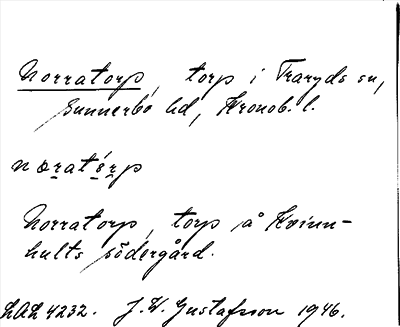 Norratorp, torp i Traryds sn,
Sunnerbo hd, Kronob. l.
nɷratérp
Norratorp, torp å Kvinn-
hults södergård.
LAL 4232. J. W. Gustafsson 1946.